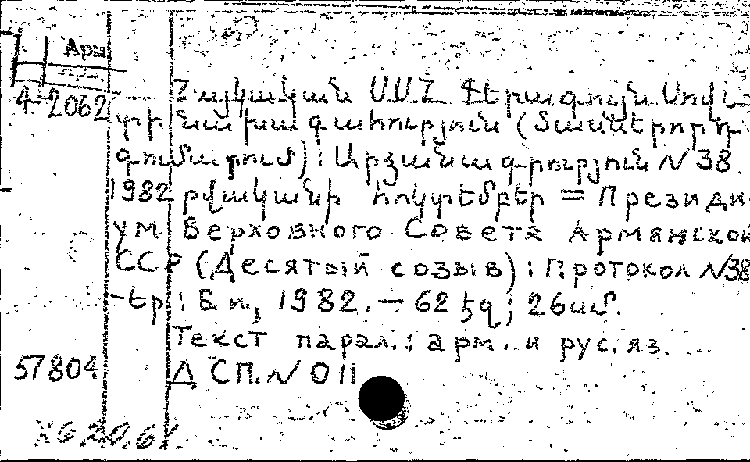 Арм
4-2062
Հայկական ՍՍՀ Գերագույն Սովե-
տի նախագահություն (Տասներորդ
գումարում): Արձանագրություն N 38
1982 թվականի հոկտեմբեր = Президи-
ум Верховного Совета Армянской
ССР (Десятый созыв): Протокол N38
- Եր.: Բ. հ., 1982. - 62 էջ; 26 սմ.
Текст парал.: арм. и рус. яз.
57804 ДСП. N 011